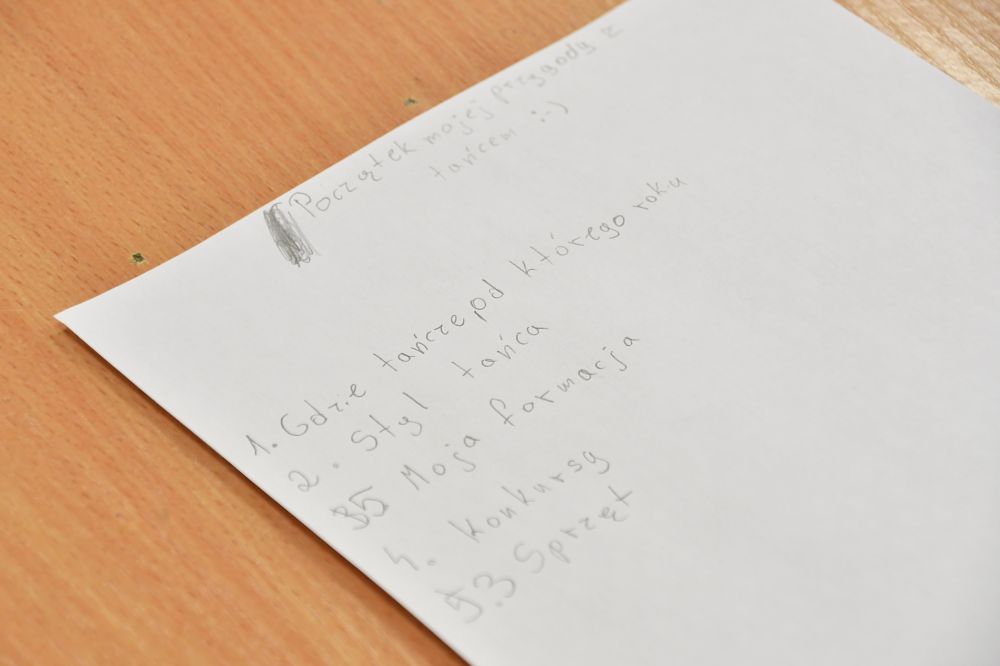 Początek mojej przygody z
tańcem :-)
1. Gdzie tańczę, od którego roku
2. Styl tańca
35 Moja formacja
4. Konkursy
5.3 Sprzęt